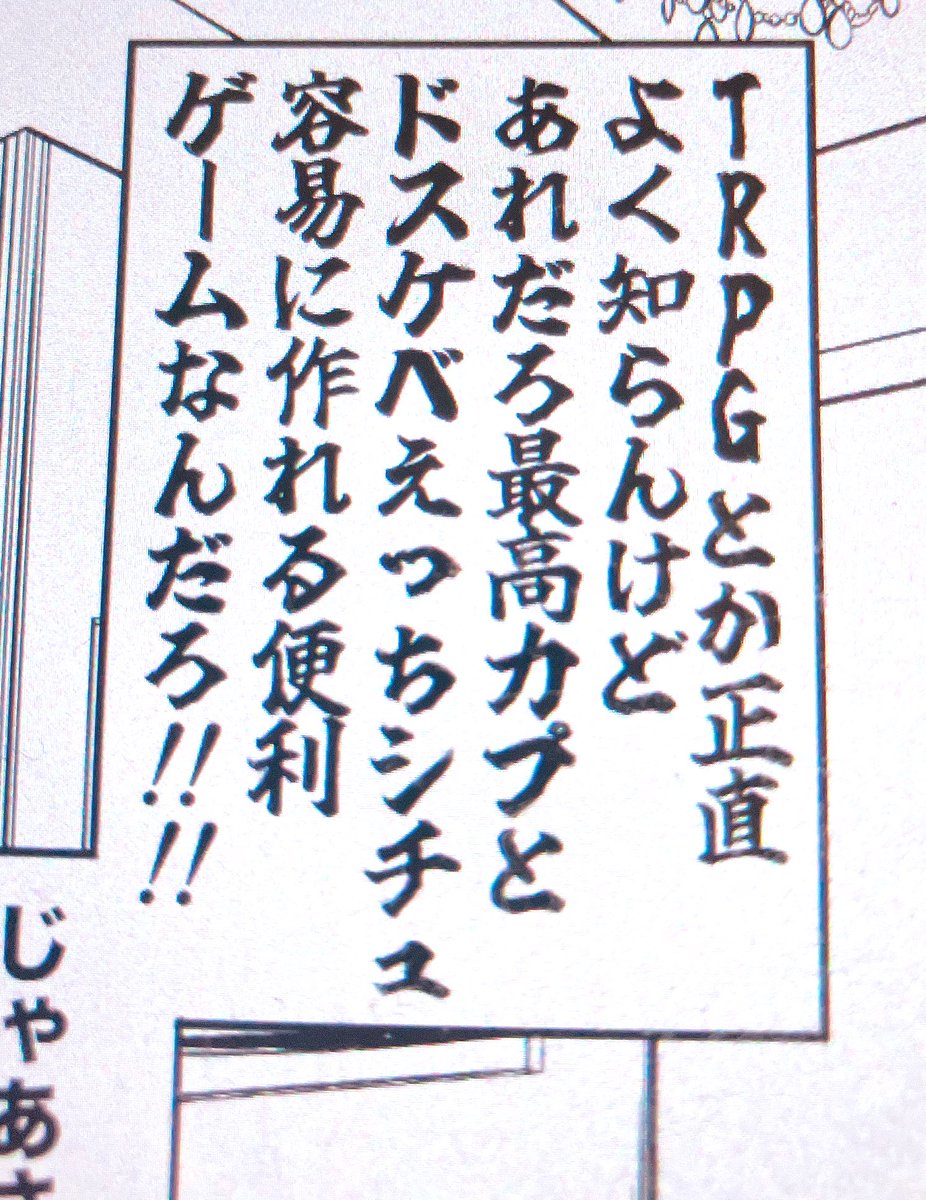 TRPGとか正直
よく知らんけど
あれだろ最高カプと
ドスケベえっちシチュ
容易に作れる便利
ゲームなんだろ!!!!
じゃあさ